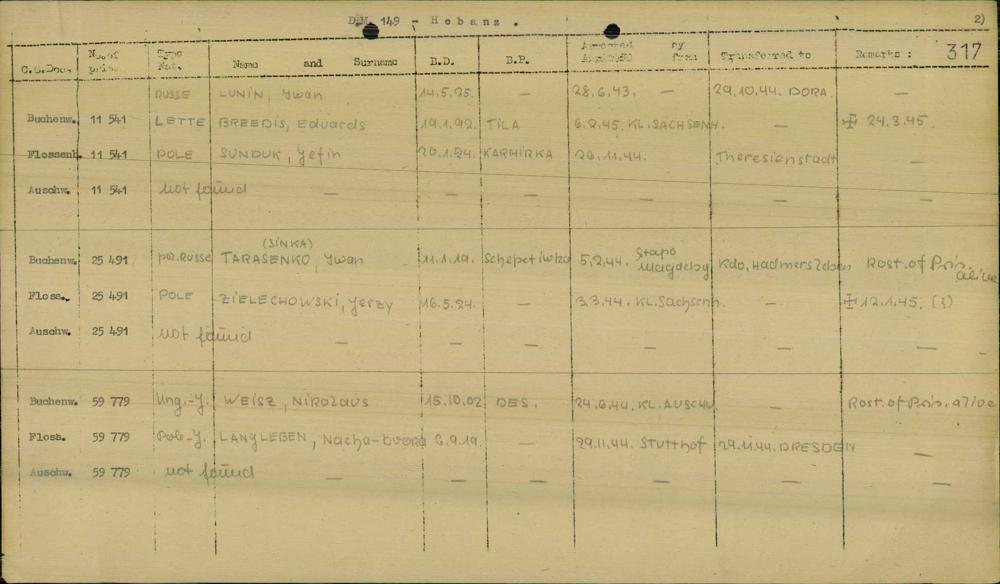 D.M. 149 - Hobanz . 2)
C.C.Doc. No.of pris. Type Nat. Name and Surname B.D. B.P. Arrested by Arrived from Transferred to Remarks : 317
RUSSE LUNIN, Ywan 14.5.25. — 28.6.43. — 29.10.44. DORA —
Buchenw. 11 541 LETTE BREEDIS, Eduards 19.1.92. TILA 6.2.45. KL.SACHSENH. — 24.3.45.
Flossenb. 11 541 POLE SUNDUK, Yefin 20.1.24. KARMIRKA 20.11.44. Theresienstadt —
Auschw. 11 541 not found — — — — — —
(SINKA)
Buchenw. 25 491 pol.Russe TARASENKO, Ywan 11.1.19. Schepetiwka 5.2.44. Stapo Magdebg Kdo, Hadmersleben Rost.of Pris. alive
Floss. 25 491 POLE ZIELECHOWSKI, Yerzy 16.5.24. — 3.3.44. KL.Sachsenh. — 12.1.45. (3)
Auschw. 25 491 not found — — — — — —
Buchenw. 59 779 Ung.-Y. WEISZ, NIKOLAUS 15.10.02 DES. 24.6.44. KL.AUSCHW. — Rost.of Pris. alive
Floss. 59 779 Pole-Y. LANGLEBEN, Nacha-Dvora 6.9.19. — 29.11.44. Stutthof 29.11.44. DRESDEN —
Auschw. 59 779 not found — — — — — —